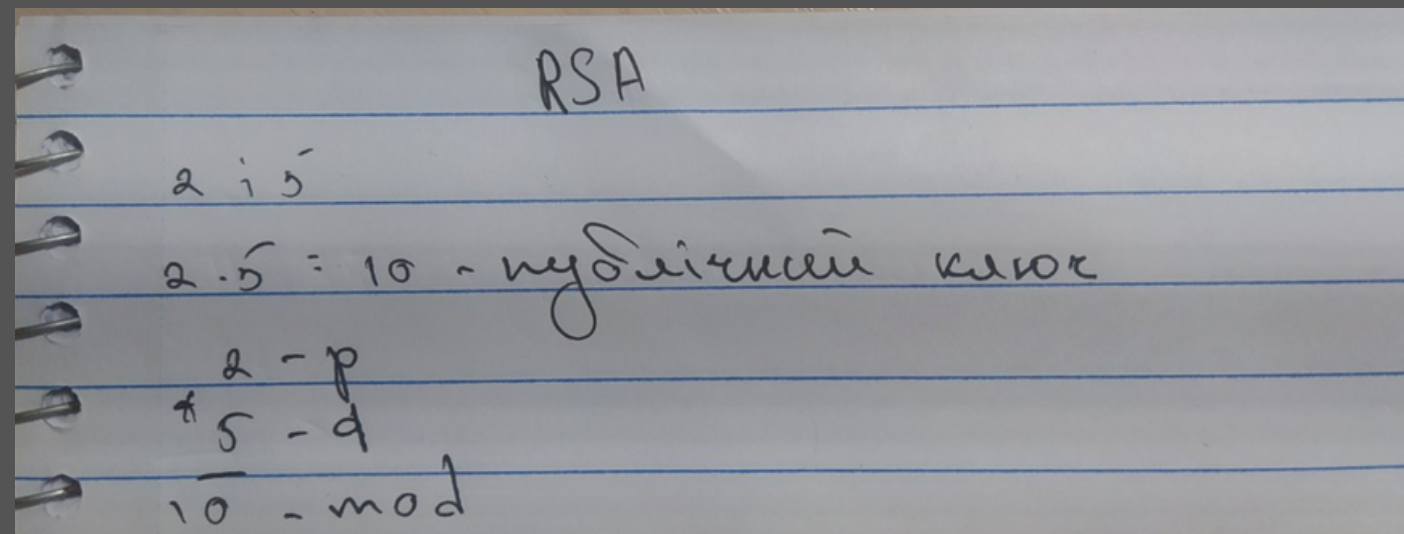 RSA
2 і 5
2 · 5 = 10 - публічний ключ
2 - p
* 5 - q
10 - mod